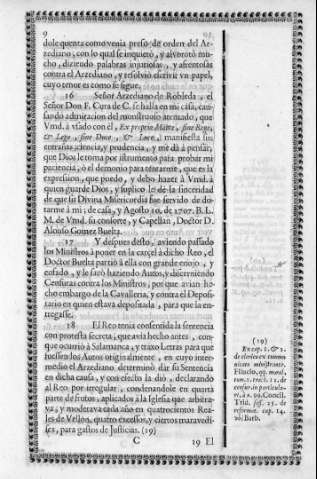 9
dole quenta como venia preso de orden del Ar-
zediano; con lo qual se inquietó, y alvorotó mu-
cho, diziendo palabras injuriosas, y afrentosas
contra el Arzediano, y resolvió escrivir vn papel,
cuyo tenor es como se sigue.
16 Señor Arzediano de Robleda, el
Señor Don F. Cura de C. se halla en mi casa, cau-
sando admiracion del monstruoso atentado, que
Vmd. à vsado con el, Ex proprio Motu, sine Rege,
& Lege, sine Deo, & Luce, manifiesta sin
entrañas, ciencia, y prudencia, y me dà à pensar,
que Dios le toma por instrumento para probar mi
paciencia, ò el demonio para tentarme, que es la
expresion, que puedo, y debo hazer à Vmd. à
quien guarde Dios, y suplico le dè la sinceridad
de que su Divina Misericordia fue servido de do-
tarme à mi; de casa, y Agosto 10. de 1707. B.L.
M. de Vmd. su conforte, y Capellan, Doctor D.
Alonso Gomez Buelta.
17 Y despues desto, aviendo passado
los Ministros à poner en la carcel à dicho Reo, el
Doctor Buelta partiò à ella con grande enojo, y
enfado, y le sacò haziendo Autos, y discerniendo
Censuras contra los Ministros, porque avian he-
cho embargo de la Cavalleria, y contra el Deposi-
tario en quien estava depositada, para que la en-
tregasse.
18 El Reo tenia consentida la sentencia
con protesta secreta, que avia hecho antes, con-
que ocurriò à Salamanca, y traxo Letras para que
fuessen los Autos originalmente, en cuyo inter-
medio el Arzediano determinó dar su Sentencia
en dicha causa, y con efecto la diò, declarando
al Reo por irregular, condenandole en quarta
parte de frutos, aplicados à la Iglesia que arbitra-
va, y moderava cada año en quatrocientos Rea-
les de Vellon, quatro excessos, y ciertos maravedi-
ses, para gastos de Justicia. (19)
C 19 El
(19)
Ex cap. 1. & 2.
de clerico excommu-
nicato ministrante.
Concil.
Trid. sess. 25. de
reformat. cap. 14.
Barb.